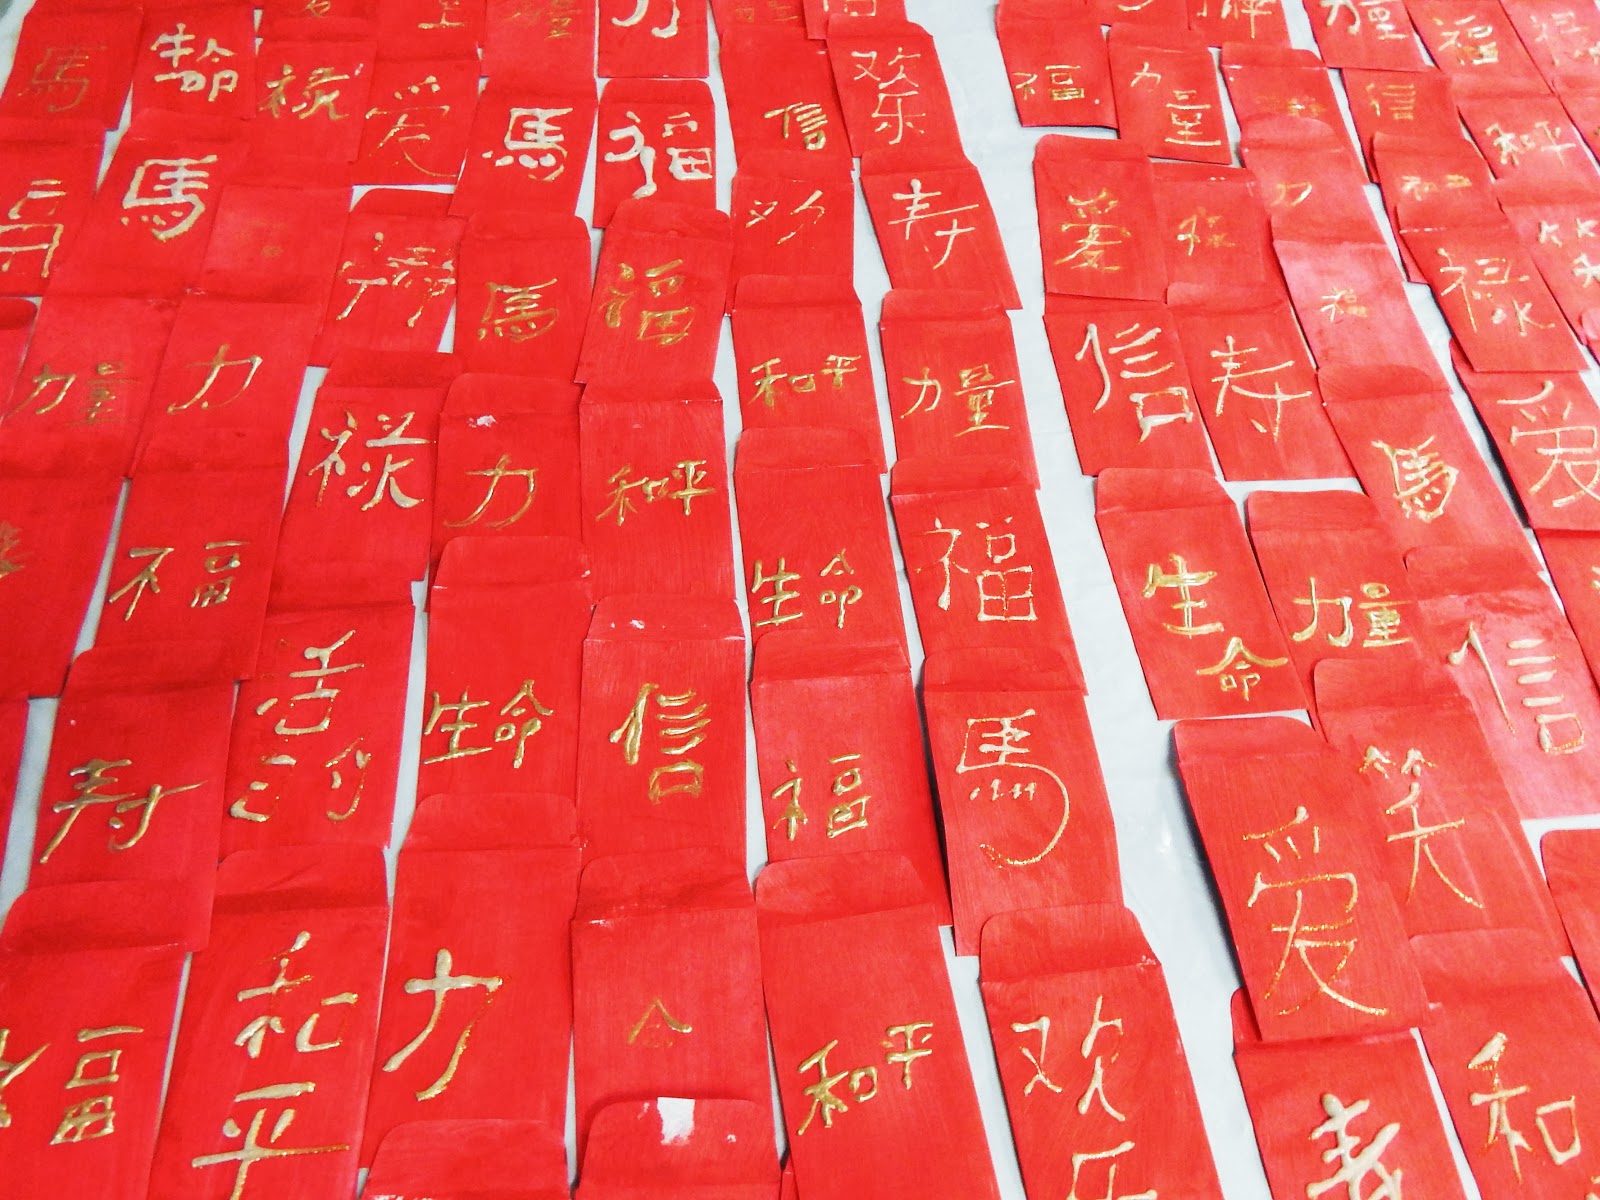 福
馬
生命
禄
爱
馬
福
信
欢
乐
福
力
量
信
和平
馬
寿
爱
力
禄
馬
福
力量
力
和平
力量
信
寿
福
爱
禄
力
和平
馬
福
生命
福
生
命
力量
信
寿
活
生命
信
福
馬
爱
笑
福
和
平
力
和平
欢
乐
寿
和